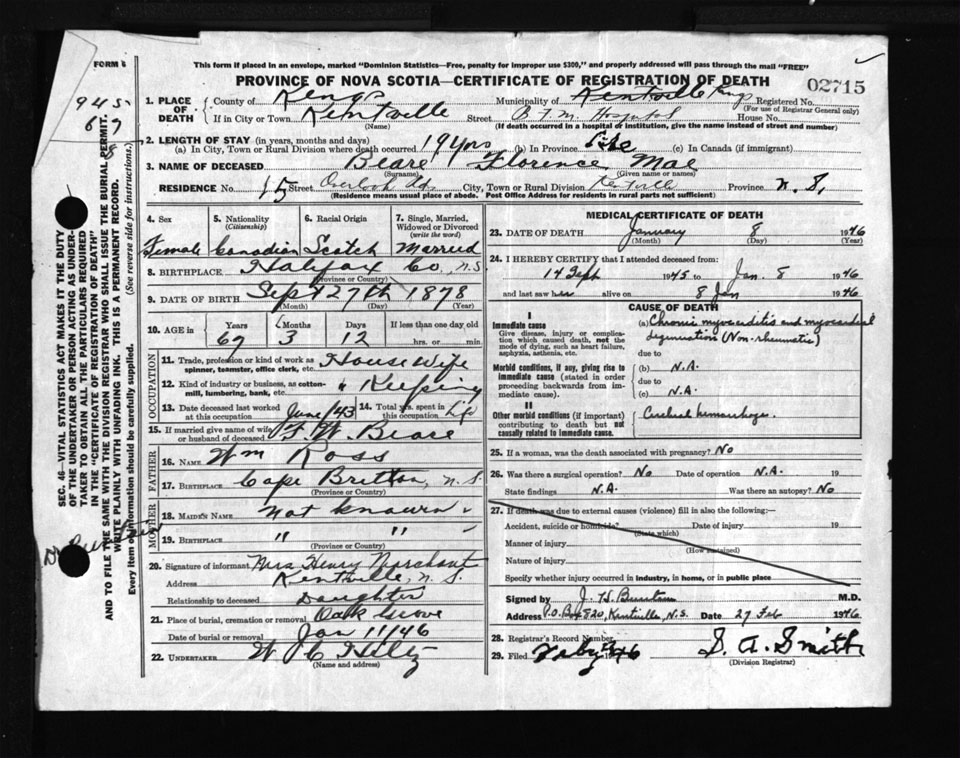 FORM 6
This form if placed in an envelope, marked "Dominion Statistics—Free, penalty for improper use $300," and properly addressed will pass through the mail "FREE"
PROVINCE OF NOVA SCOTIA—CERTIFICATE OF REGISTRATION OF DEATH
02715
945
1. PLACE OF DEATH { County of Kings Municipality of Kentville Kings Registered No.
(For use of Registrar General only)
If in City or Town Kentville Street B.F.M. Hospital House No.
(Name) (If death occurred in a hospital or institution, give the name instead of street and number)
2. LENGTH OF STAY (in years, months and days)
(a) In City, Town or Rural Division where death occurred 19 yrs (b) In Province Life (c) In Canada (if immigrant)
3. NAME OF DECEASED Beare Florence Mae
(Surname) (Given name or names)
RESIDENCE No. 15 Street Overlook City, Town or Rural Division Kentville Province N.S.
(Residence means usual place of abode. Post Office Address for residents in rural parts not sufficient)
4. Sex Female
5. Nationality (Citizenship) Canadian
6. Racial Origin Scotch
7. Single, Married, Widowed or Divorced (write the word) Married
8. BIRTHPLACE Halifax Co. N.S.
(Province or Country)
9. DATE OF BIRTH Sept 27th 1878
(Month) (Day) (Year)
10. AGE in Years Months Days If less than one day old
67 3 12 hrs. or min.
OCCUPATION
11. Trade, profession or kind of work as spinner, teamster, office clerk, etc. House Wife
12. Kind of industry or business, as cotton-mill, lumbering, bank, etc. " Keeping
13. Date deceased last worked at this occupation June/43 14. Total yrs. spent in this occupation Life
15. If married give name of wife or husband of deceased F. W. Beare
FATHER
16. NAME Wm Ross
17. BIRTHPLACE Cape Britton, N.S.
(Province or Country)
MOTHER
18. MAIDEN NAME Not known
19. BIRTHPLACE " "
(Province or Country)
20. Signature of informant Mrs Henry Marchant
Address Kentville, N.S.
Relationship to deceased Daughter
21. Place of burial, cremation or removal Oak Grove
Date of burial or removal Jan 11/46
22. UNDERTAKER W C Hiltz
(Name and address)
MEDICAL CERTIFICATE OF DEATH
23. DATE OF DEATH January 8 1946
(Month) (Day) (Year)
24. I HEREBY CERTIFY that I attended deceased from:
14 Sept 1945 to Jan. 8 1946
and last saw her alive on 8 Jan 1946
CAUSE OF DEATH
I
Immediate cause
Give disease, injury or complication which caused death, not the mode of dying, such as heart failure, asphyxia, asthenia, etc.
(a) Chronic myocarditis and myocardial degeneration (Non-rheumatic)
due to
Morbid conditions, if any, giving rise to immediate cause (stated in order proceeding backwards from immediate cause).
(b) N.A.
due to
(c) N.A.
II
Other morbid conditions (if important) contributing to death but not causally related to immediate cause.
Cerebral hemorrhage.
25. If a woman, was the death associated with pregnancy? No
26. Was there a surgical operation? No Date of operation N.A. 19
State findings N.A. Was there an autopsy? No
27. If death was due to external causes (violence) fill in also the following:—
Accident, suicide or homicide? Date of injury 19
(State which)
Manner of injury
(How sustained)
Nature of injury
Specify whether injury occurred in industry, in home, or in public place
Signed by J. H. M.D.
Address P.O. Box 820, Kentville, N.S. Date 27 Feb 1946
28. Registrar's Record Number
29. Filed 1946 S. A. Smith
(Division Registrar)
SEC. 46—VITAL STATISTICS ACT MAKES IT THE DUTY
OF THE UNDERTAKER OR PERSON ACTING AS UNDER-
TAKER TO OBTAIN ALL THE PARTICULARS REQUIRED
IN THE "CERTIFICATE OF REGISTRATION OF DEATH"
AND TO FILE THE SAME WITH THE DIVISION REGISTRAR WHO SHALL ISSUE THE BURIAL PERMIT.
WRITE PLAINLY WITH UNFADING INK. THIS IS A PERMANENT RECORD.
Every item of information should be carefully supplied. (See reverse side for instructions.)